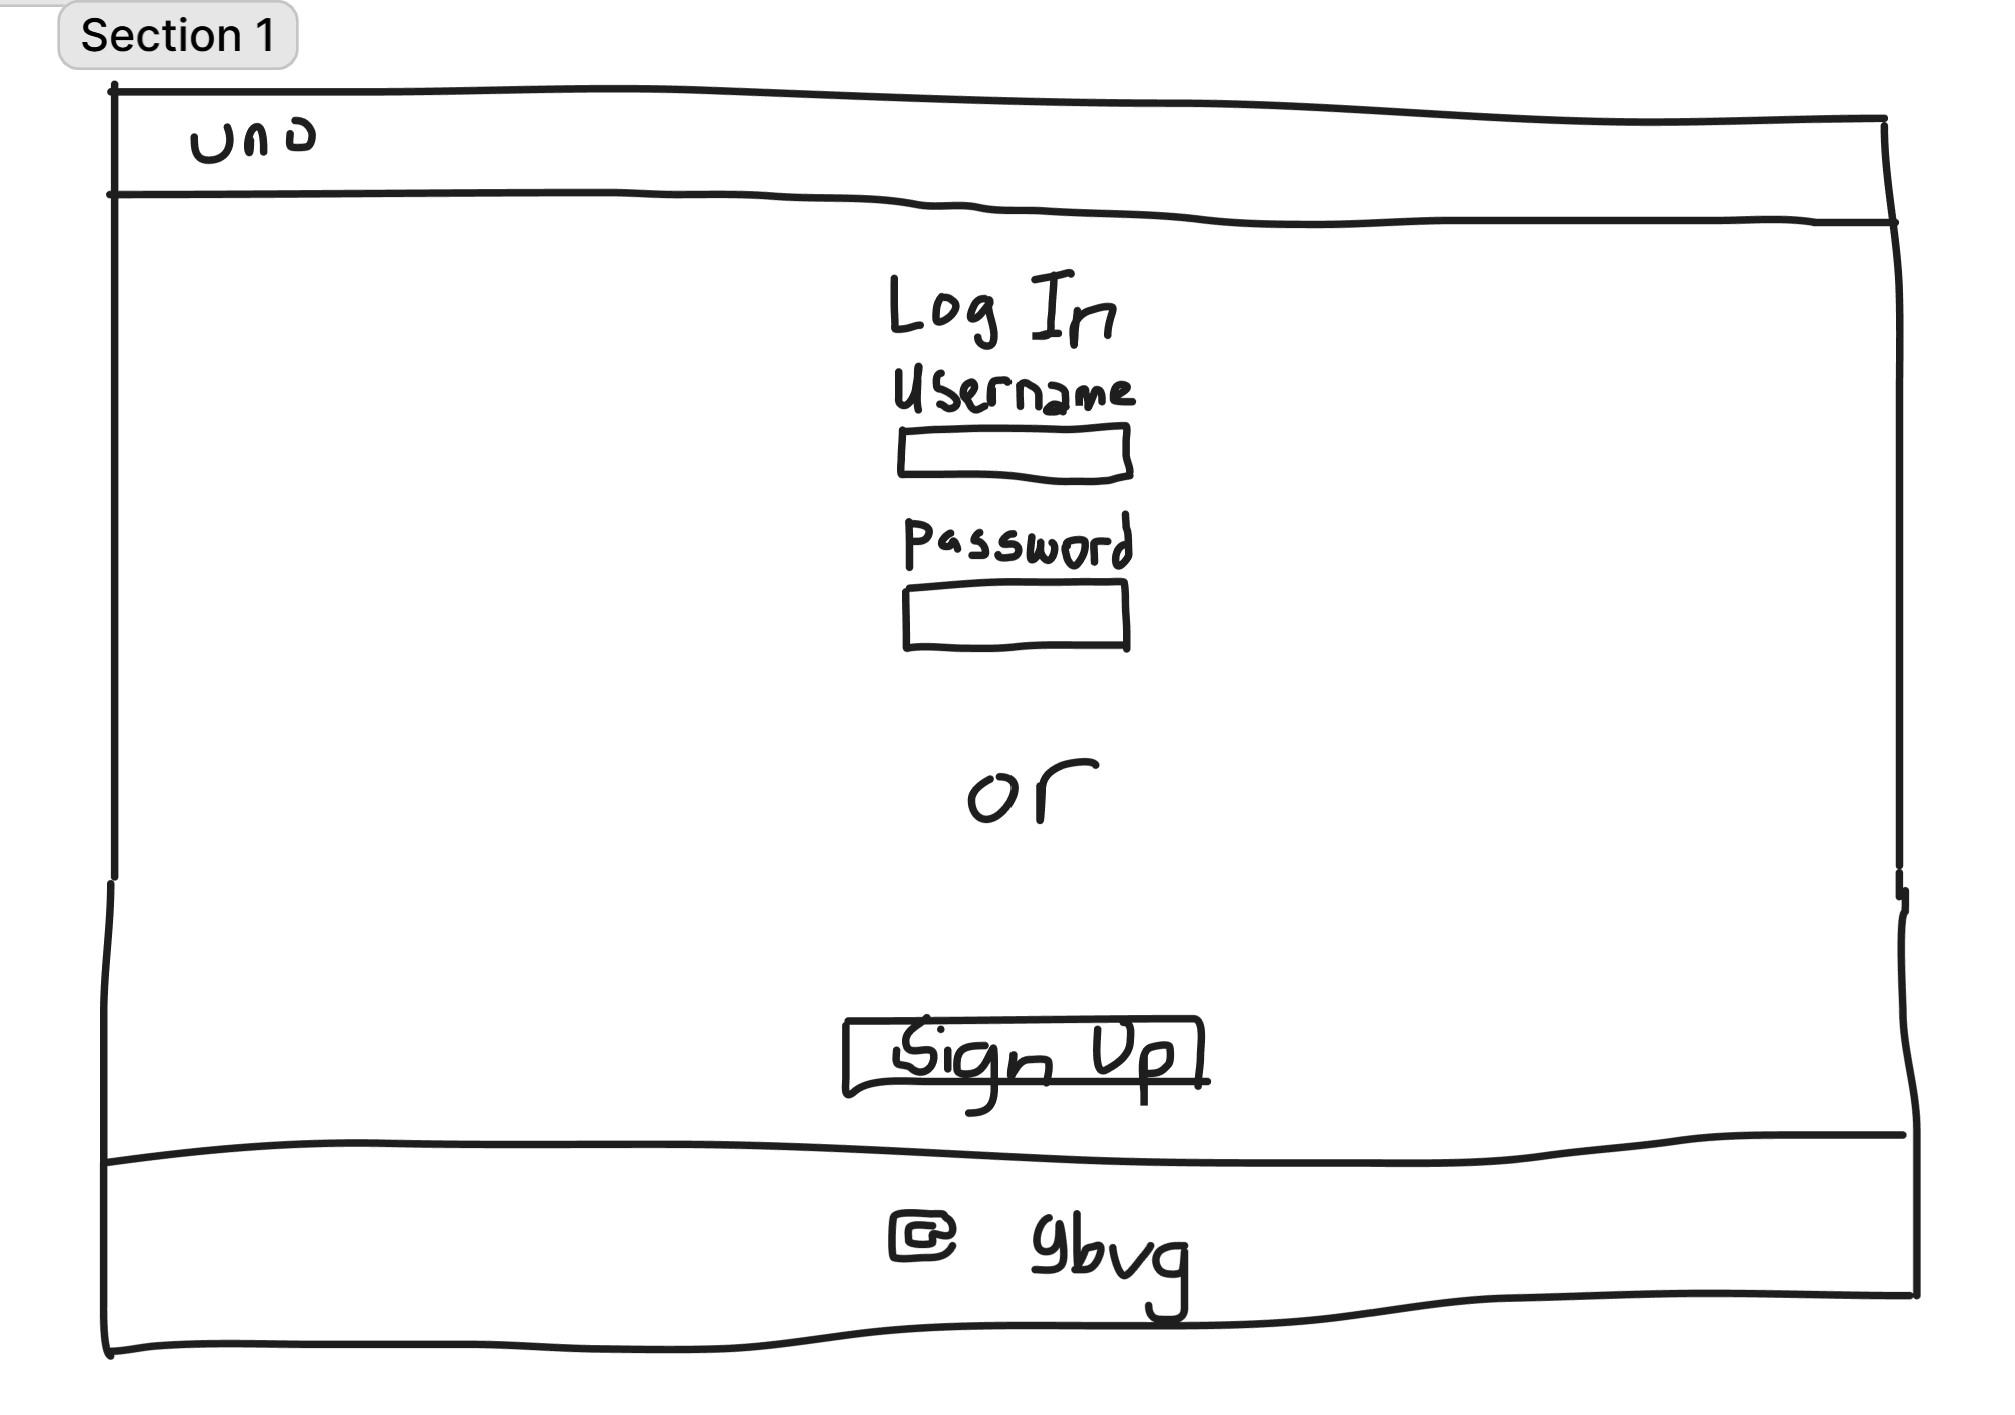 Section 1
uno
Log In
Username
Password
or
Sign Up
@ gbvg